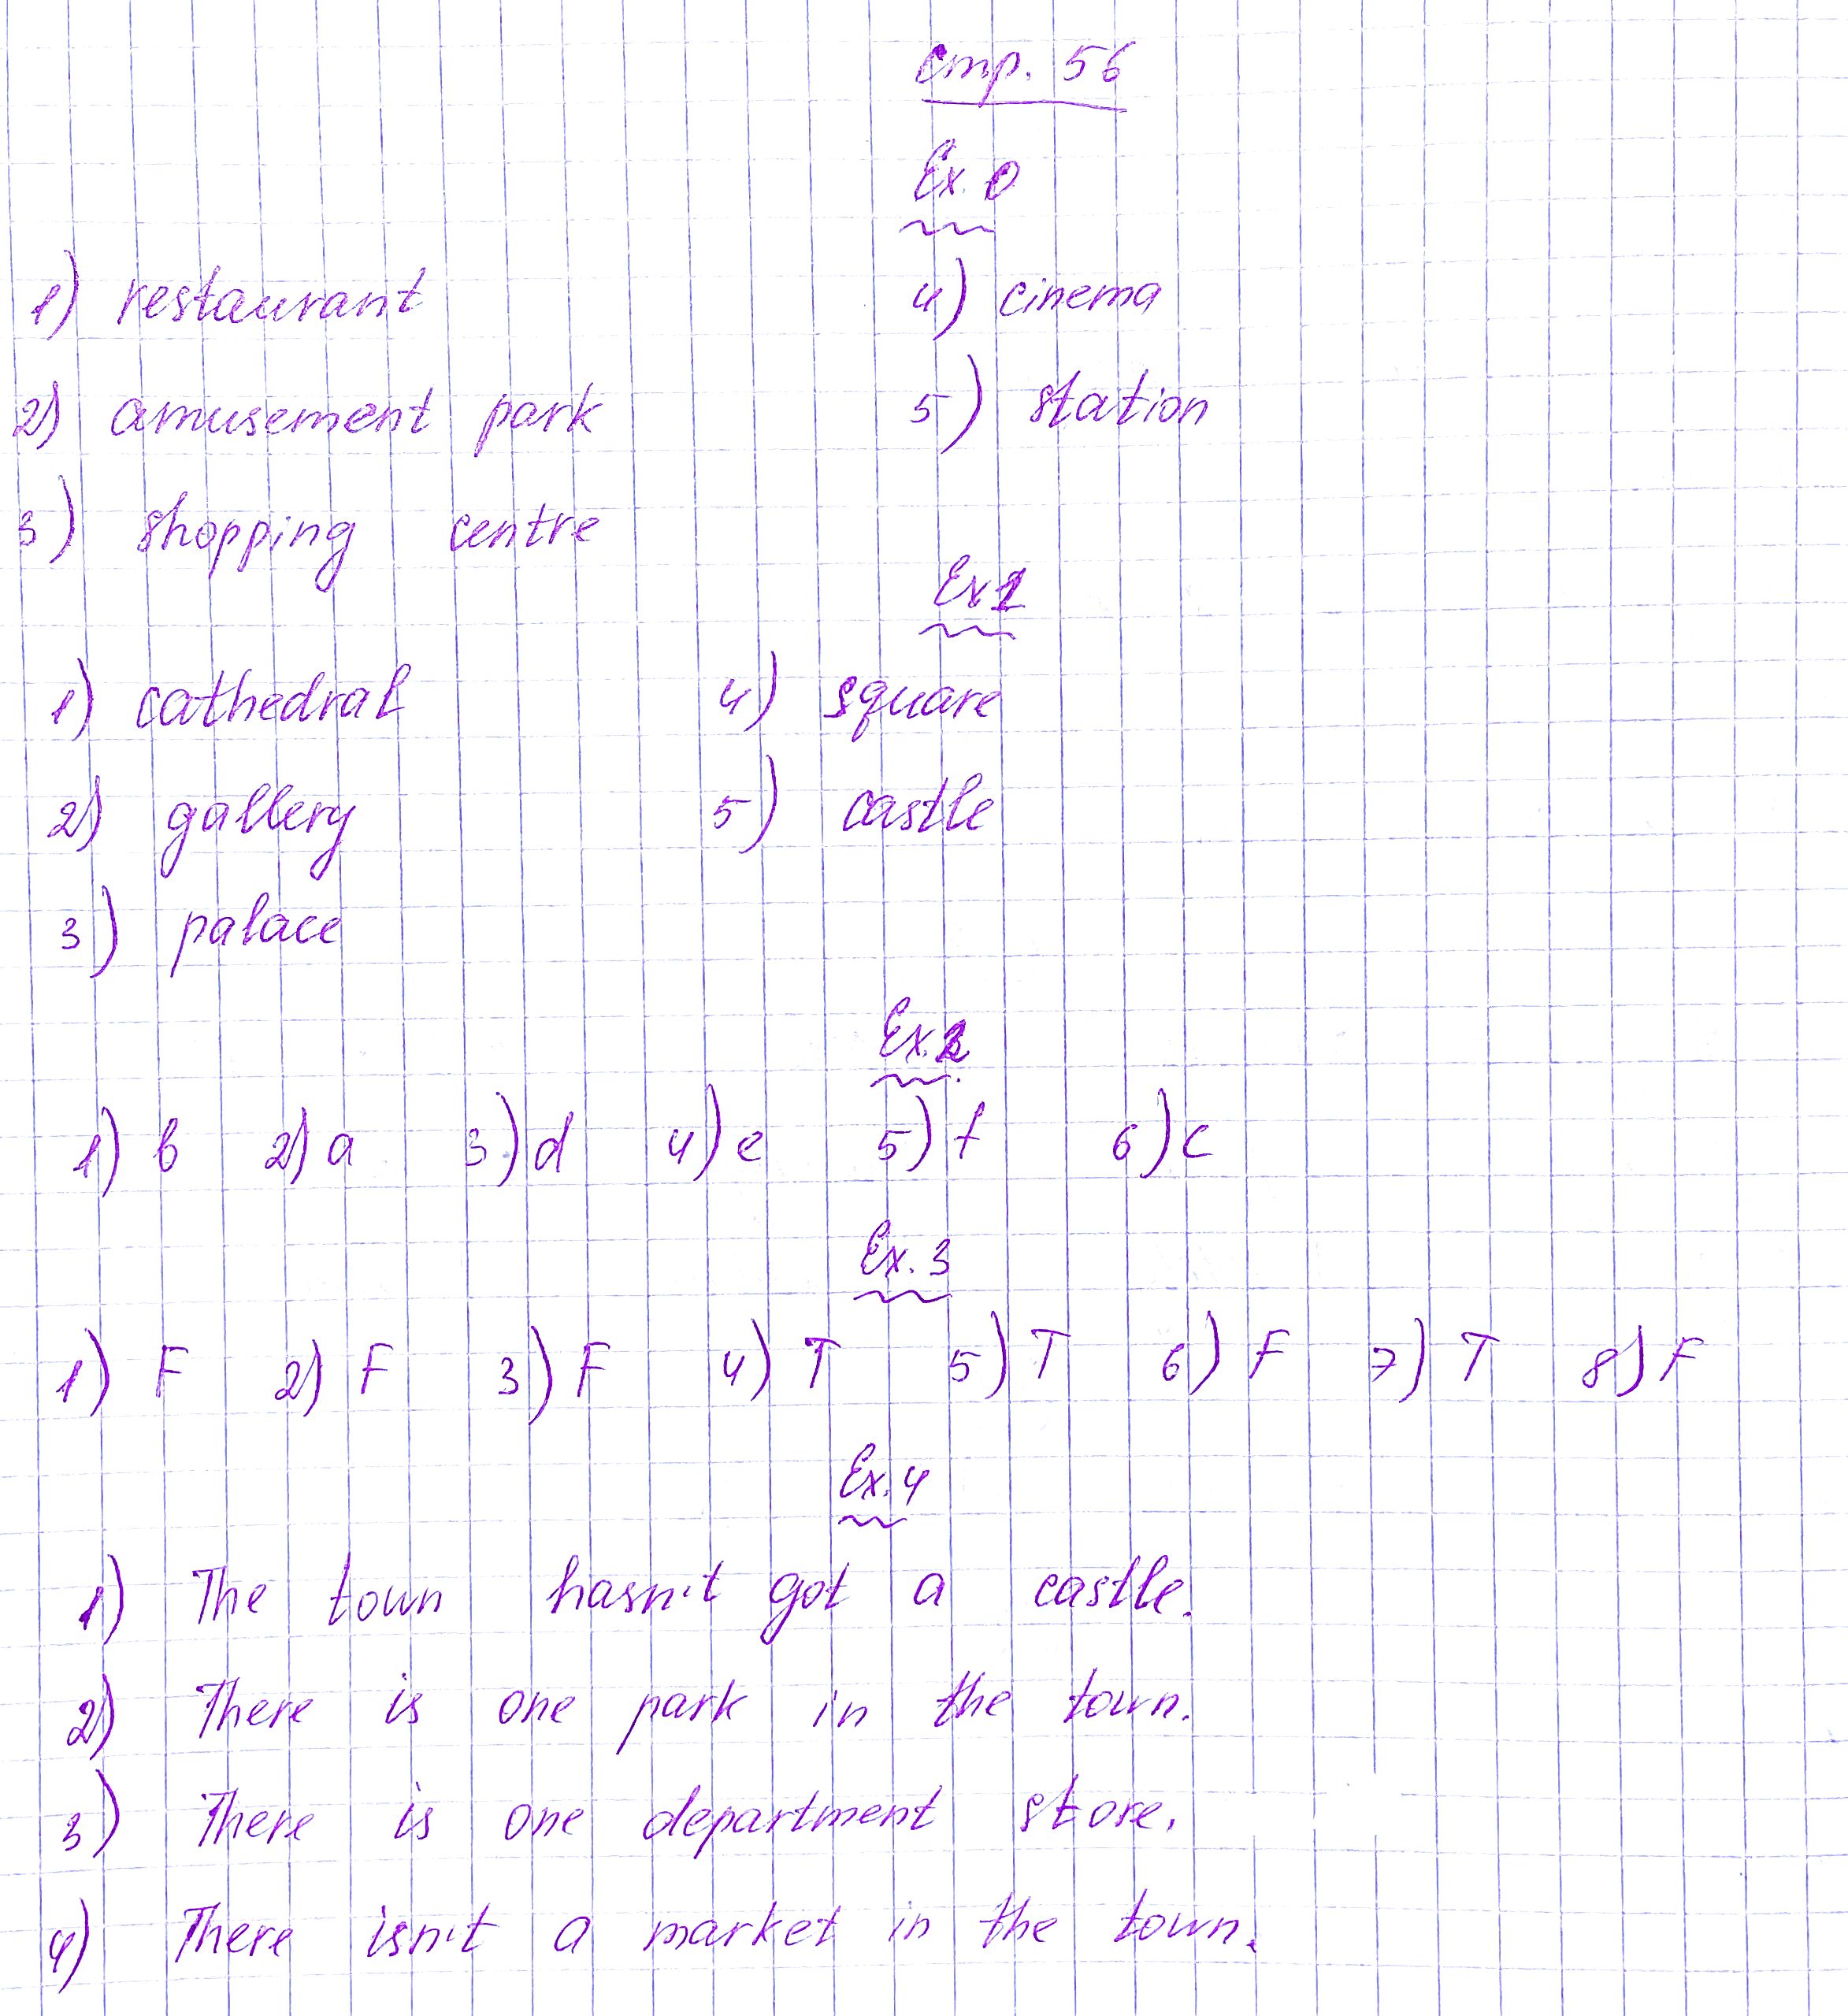 стр. 56
Ex. 0
1) restaurant 4) cinema
2) amusement park 5) station
3) shopping centre
Ex 1
1) cathedral 4) square
2) gallery 5) castle
3) palace
Ex. 2
1) b 2) a 3) d 4) e 5) f 6) c
Ex. 3
1) F 2) F 3) F 4) T 5) T 6) F 7) T 8) F
Ex. 4
1) The town hasn't got a castle.
2) There is one park in the town.
3) There is one department store.
4) There isn't a market in the town.